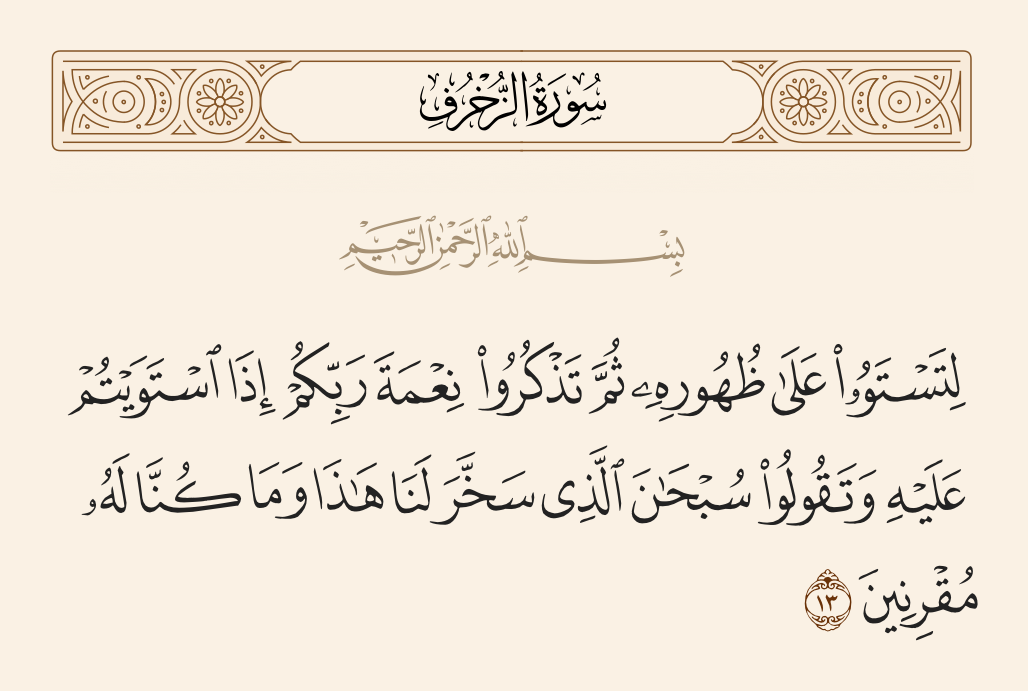 سُورَةُ الزُّخْرُفِ
بِسْمِ ٱللَّهِ ٱلرَّحْمَٰنِ ٱلرَّحِيمِ
لِتَسْتَوُۥا۟ عَلَىٰ ظُهُورِهِۦ ثُمَّ تَذْكُرُوا۟ نِعْمَةَ رَبِّكُمْ إِذَا ٱسْتَوَيْتُمْ
عَلَيْهِ وَتَقُولُوا۟ سُبْحَٰنَ ٱلَّذِى سَخَّرَ لَنَا هَٰذَا وَمَا كُنَّا لَهُۥ
مُقْرِنِينَ ١٣